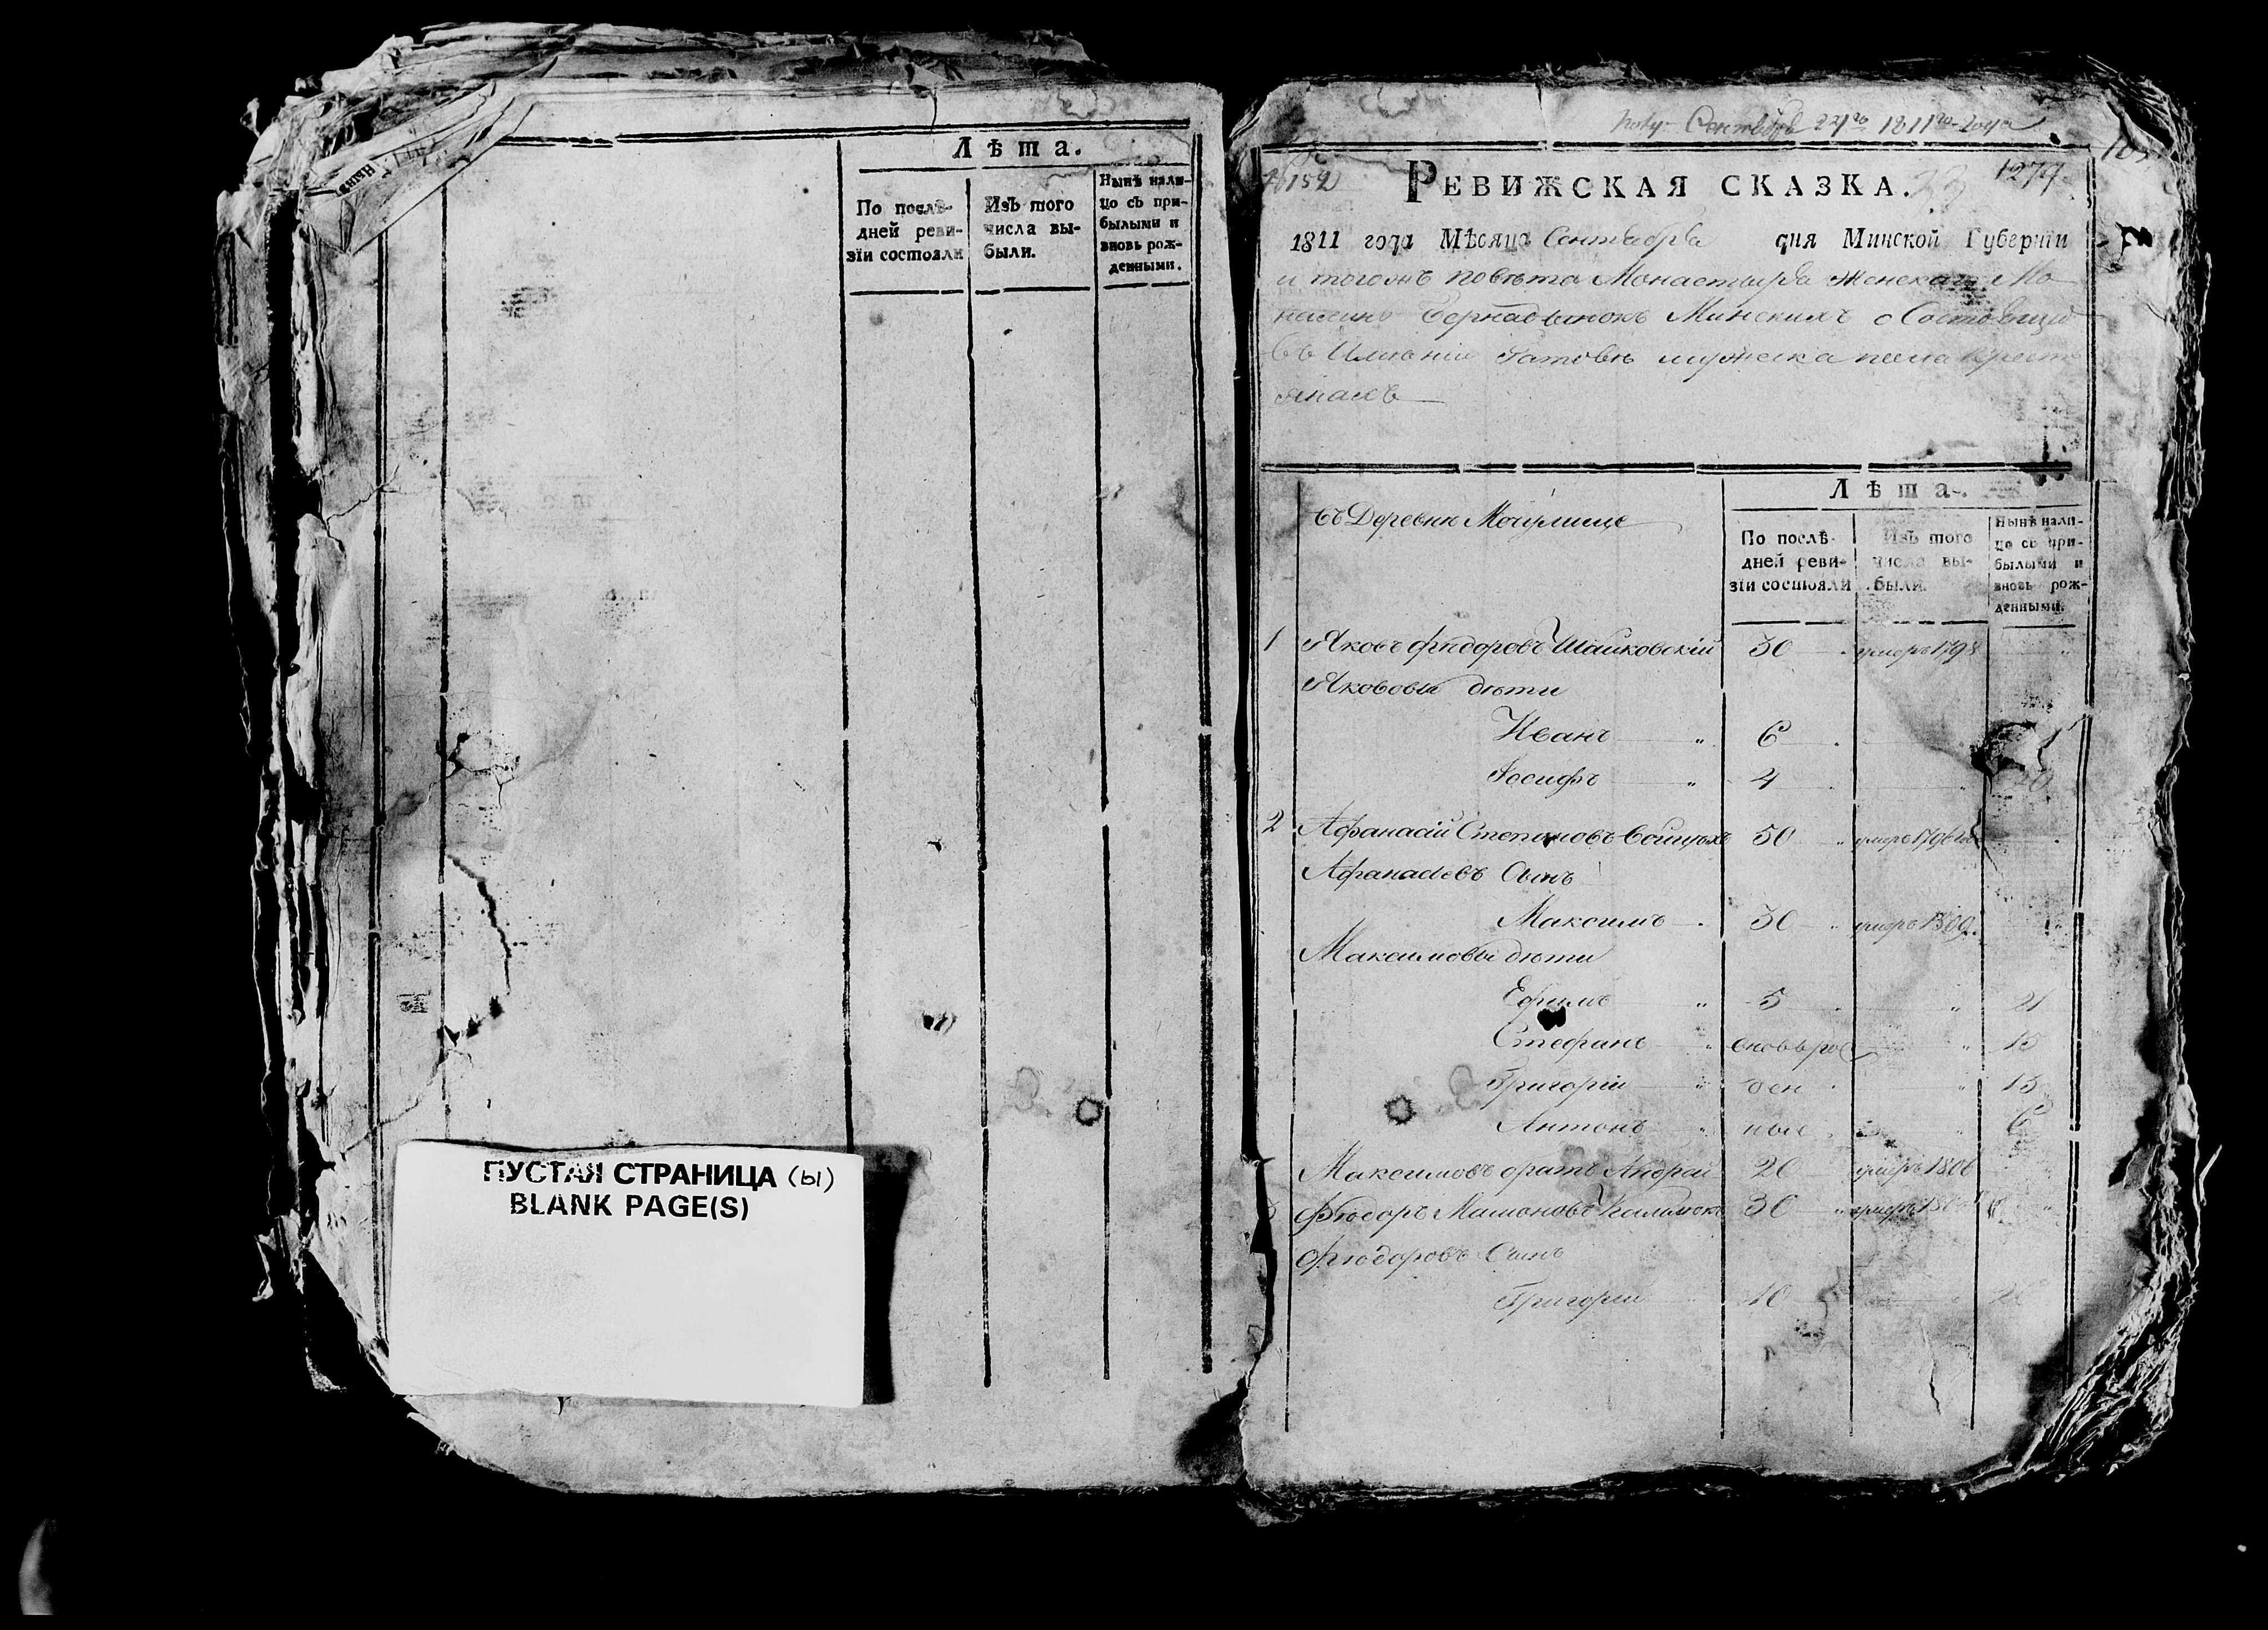 Нынѣ
Лѣта.
По послѣ-
дней реви-
зїи состояли
Изъ того
числа вы-
были.
Нынѣ нали-
цо съ при-
былыми и
вновь рож-
денными.
ПУСТАЯ СТРАНИЦА (ы)
BLANK PAGE(S)
Сентября 22го 1811го года
№ 152
1277
РЕВИЖСКАЯ СКАЗКА.
1811 года Мѣсяца Сентября дня Минской Губернїи
и тогожъ повѣта Монастыря Женскаго
Минскихъ
въ Имѣнїи Гатовѣ мужеска пола крестъ
янахъ
Лѣта.
Въ Деревнѣ
По послѣ-
дней реви-
зїи состояли
Изъ того
числа вы-
были.
Нынѣ нали-
цо съ при-
былыми и
вновь рож-
денными.
1 Яковъ Фѣдоровъ 30 умеръ 1798
Яковова дѣти
Иванъ 6
Іосифъ 4 20
2 Афанасій Степановъ 50 умеръ 1796
Афанасьевъ Сынъ
Максимъ 30 умеръ 1809
Максимовы дѣти
Ефимъ 5 21
Стефанъ вновь ро 15
Григорій ден 13
Антонъ ные 6
Максимовъ братъ Андрей 20 умеръ 1806
Фѣодоръ 30 умеръ
Фѣодоровъ Сынъ
Григорій 10